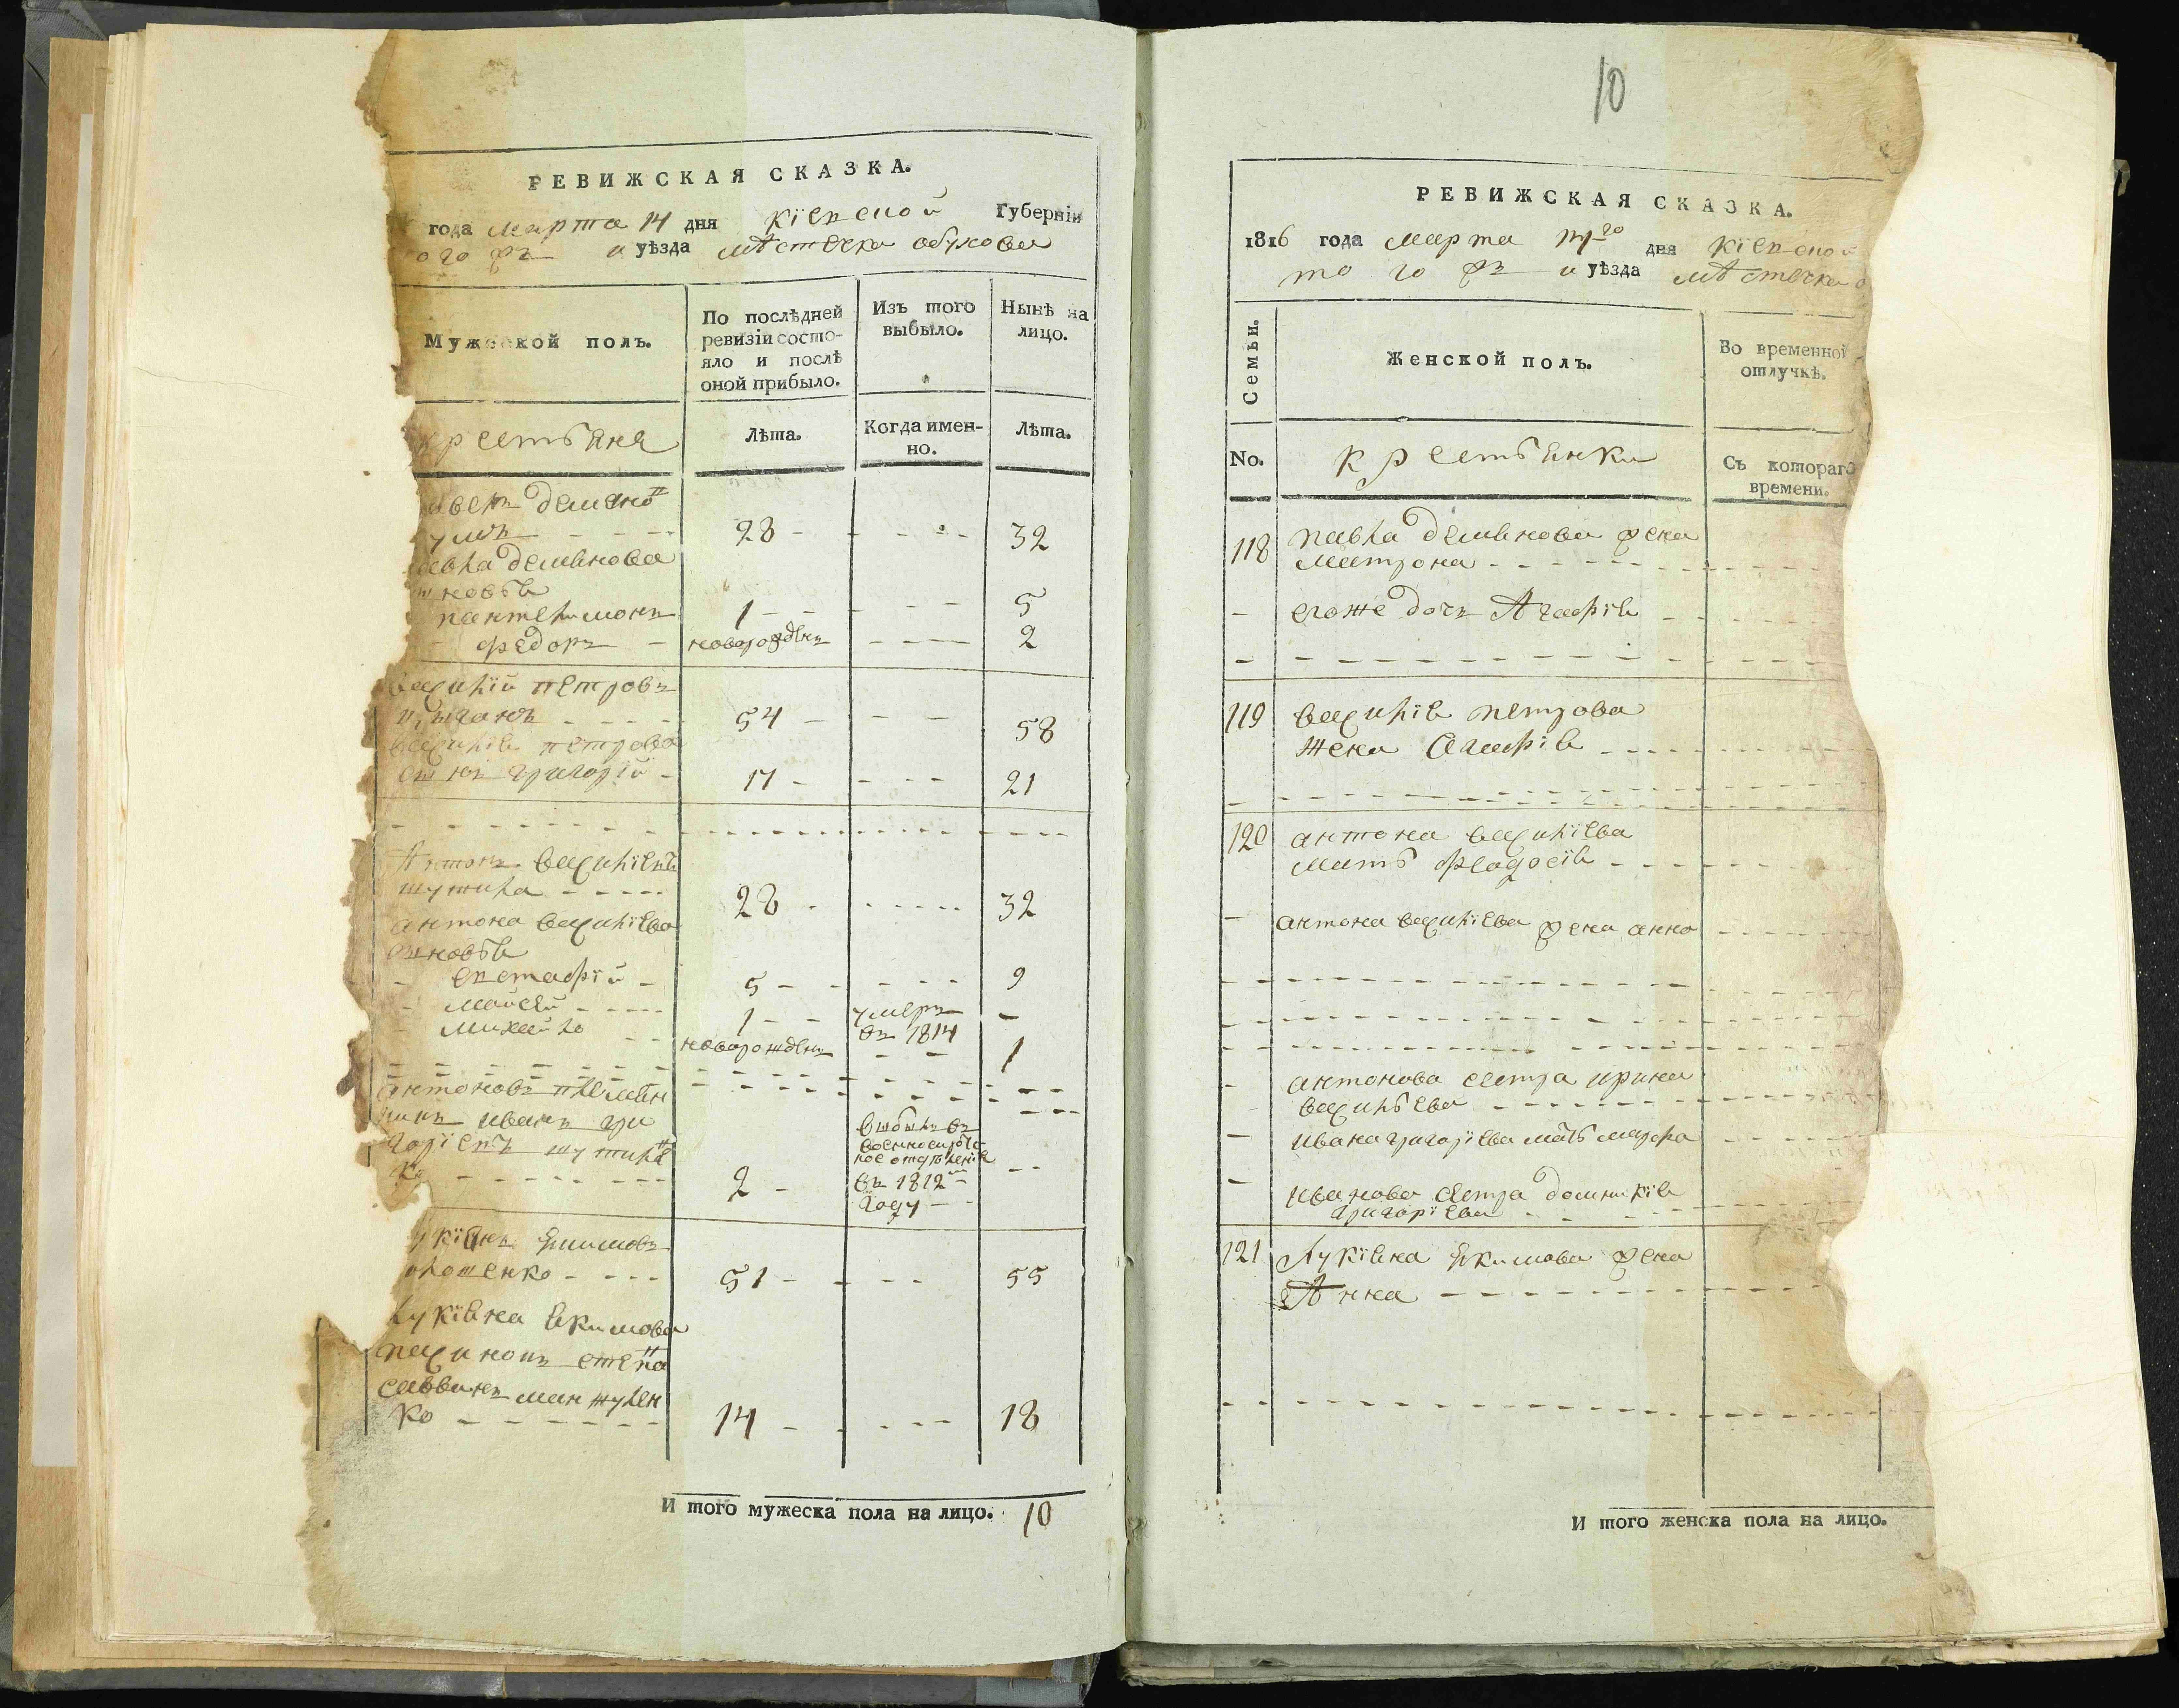 РЕВИЖСКАЯ СКАЗКА.
года марта 14 дня кїевской Губернїи
ого жъ и уѣзда мѣстечка обухова
Мужеской полъ.
По послѣдней ревизїи состо-
яло и послѣ
оной прибыло.
Изъ того
выбыло.
Нынѣ на
лицо.
крестьяне
Лѣта.
Когда имен-
но.
Лѣта.
28 32
павла демянова
пантелимонъ 1 5
федоръ новорожденъ 2
василїй петровъ
54 58
василїя петрова
сынъ григорїй 17 21
Антонъ василїевъ
шутила 28 32
антона василїева
сыновья
евстафїй 5 9
моисей 1 умеръ
въ 1814
михайло новорожденъ 1
антоновъ племян
никъ иванъ гри
горїевъ шутилен
ко 2
выбылъ въ
военносирот
ское отделенїе
въ 1812м
году
51 55
лукїяна якимова
пасинокъ степа
саввинъ манжулен
ко 14 18
И того мужеска пола на лицо. 10
10
РЕВИЖСКАЯ СКАЗКА.
1816 года марта 14го дня кїевской
того жъ и уѣзда мѣстечка о
Семьи.
Женской полъ.
Во временной
отлучкѣ.
No.
крестьянки
Съ котораго
времени.
118 павла демянова жена
матрона
егоже дочь Агафїя
119 василїя петрова
жена Агафїя
120 антона василїева
мать феодосїя
антона василїева жена анна
антонова сестра ирина
васильева
ивана григорїева мать марфа
иванова сестра домникїя
григорїева
121 Лукїяна якимова жена
Анна
И того женска пола на лицо.